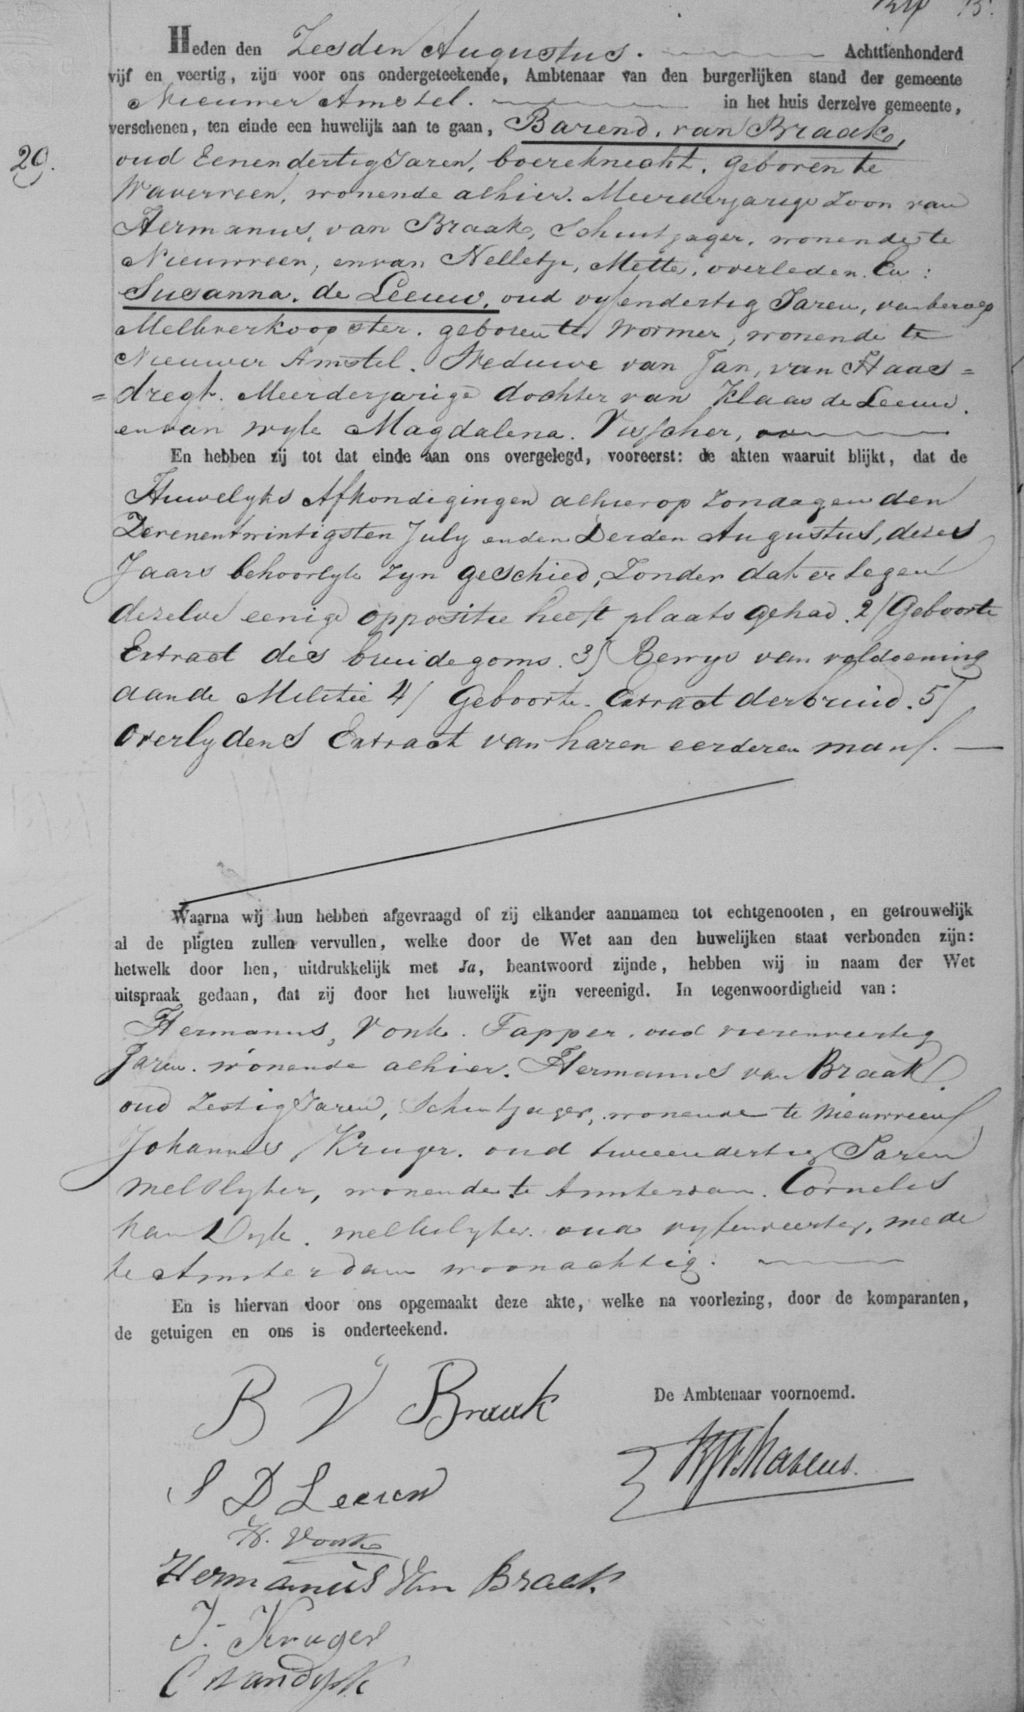 Heden den Zesden Augustus. Achttienhonderd
vijf en veertig, zijn voor ons ondergeteekende, Ambtenaar van den burgerlijken stand der gemeente
Nieuwer Amstel. in het huis derzelve gemeente,
verschenen, ten einde een huwelijk aan te gaan, Barend, van Braak,
29.
oud Eenendertig Jaren, boereknecht, geboren te
Waverveen, wonende alhier. Meerderjarige Zoon van
Hermanus, van Braak, Schutjager, wonende te
Nieuwveen, en van Nelletje, Mette, overleden. En:
Susanna, de Leeuw, oud vyfendertig Jaren, van beroep
Melkverkoopster. geboren te Wormer, wonende te
Nieuwer Amstel. Weduwe van Jan, van Haas=
=dregt. Meerderjarige dochter van Klaas de Leeuw.
en van wyle Magdalena. Visscher,
En hebben zij tot dat einde aan ons overgelegd, vooreerst: de akten waaruit blijkt, dat de
Huwelyks Afkondigingen alhier op Zondagen den
Zevenentwintigsten July en den Derden Augustus, dezes
Jaars behoorlyk zyn geschied, Zonder dat er tegen
dezelve eenige oppositie heeft plaats gehad. 2/ Geboorte
Extract des bruidegoms. 3/ Bewys van voldoening
aan de Militie 4/ Geboorte-Extract der bruid. 5/
Overlydens Extract van haren eerderen man/.
Waarna wij hun hebben afgevraagd of zij elkander aannamen tot echtgenooten, en getrouwelijk
al de pligten zullen vervullen, welke door de Wet aan den huwelijken staat verbonden zijn:
hetwelk door hen, uitdrukkelijk met Ja, beantwoord zijnde, hebben wij in naam der Wet
uitspraak gedaan, dat zij door het huwelijk zijn vereenigd. In tegenwoordigheid van:
Hermanus, Vonk. Tapper. oud vierenveertig
Jaren. wonende alhier. Hermanus van Braak.
oud Zestig Jaren, Schutjager, wonende te Nieuwveen/
Johannes Kruger. oud tweeendertig Jaren
melkslyter, wonende te Amsterdam. Cornelis
van Dyk. melkslyter. oud vyfenveertig, mede
te Amsterdam woonachtig.
En is hiervan door ons opgemaakt deze akte, welke na voorlezing, door de komparanten,
de getuigen en ons is onderteekend.
B V Braak
De Ambtenaar voornoemd.
S D Leeuw
H. Vonk
Hermanus Van Braak.
J. Kruger
C van Dyk